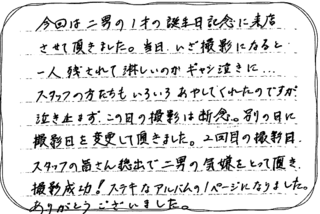 今回は二男の1才の誕生日記念に来店
させて頂きました。当日、いざ撮影になると
一人残されて淋しいのかギャン泣きに…
スタッフの方たちもいろいろあやしてくれたのですが
泣き止まず、この日の撮影は断念。別の日に
撮影日を変更して頂きました。2回目の撮影日、
スタッフの皆さん総出で二男の気嫌をとって頂き
撮影成功！ステキなアルバムの1ページになりました。
ありがとうございました。